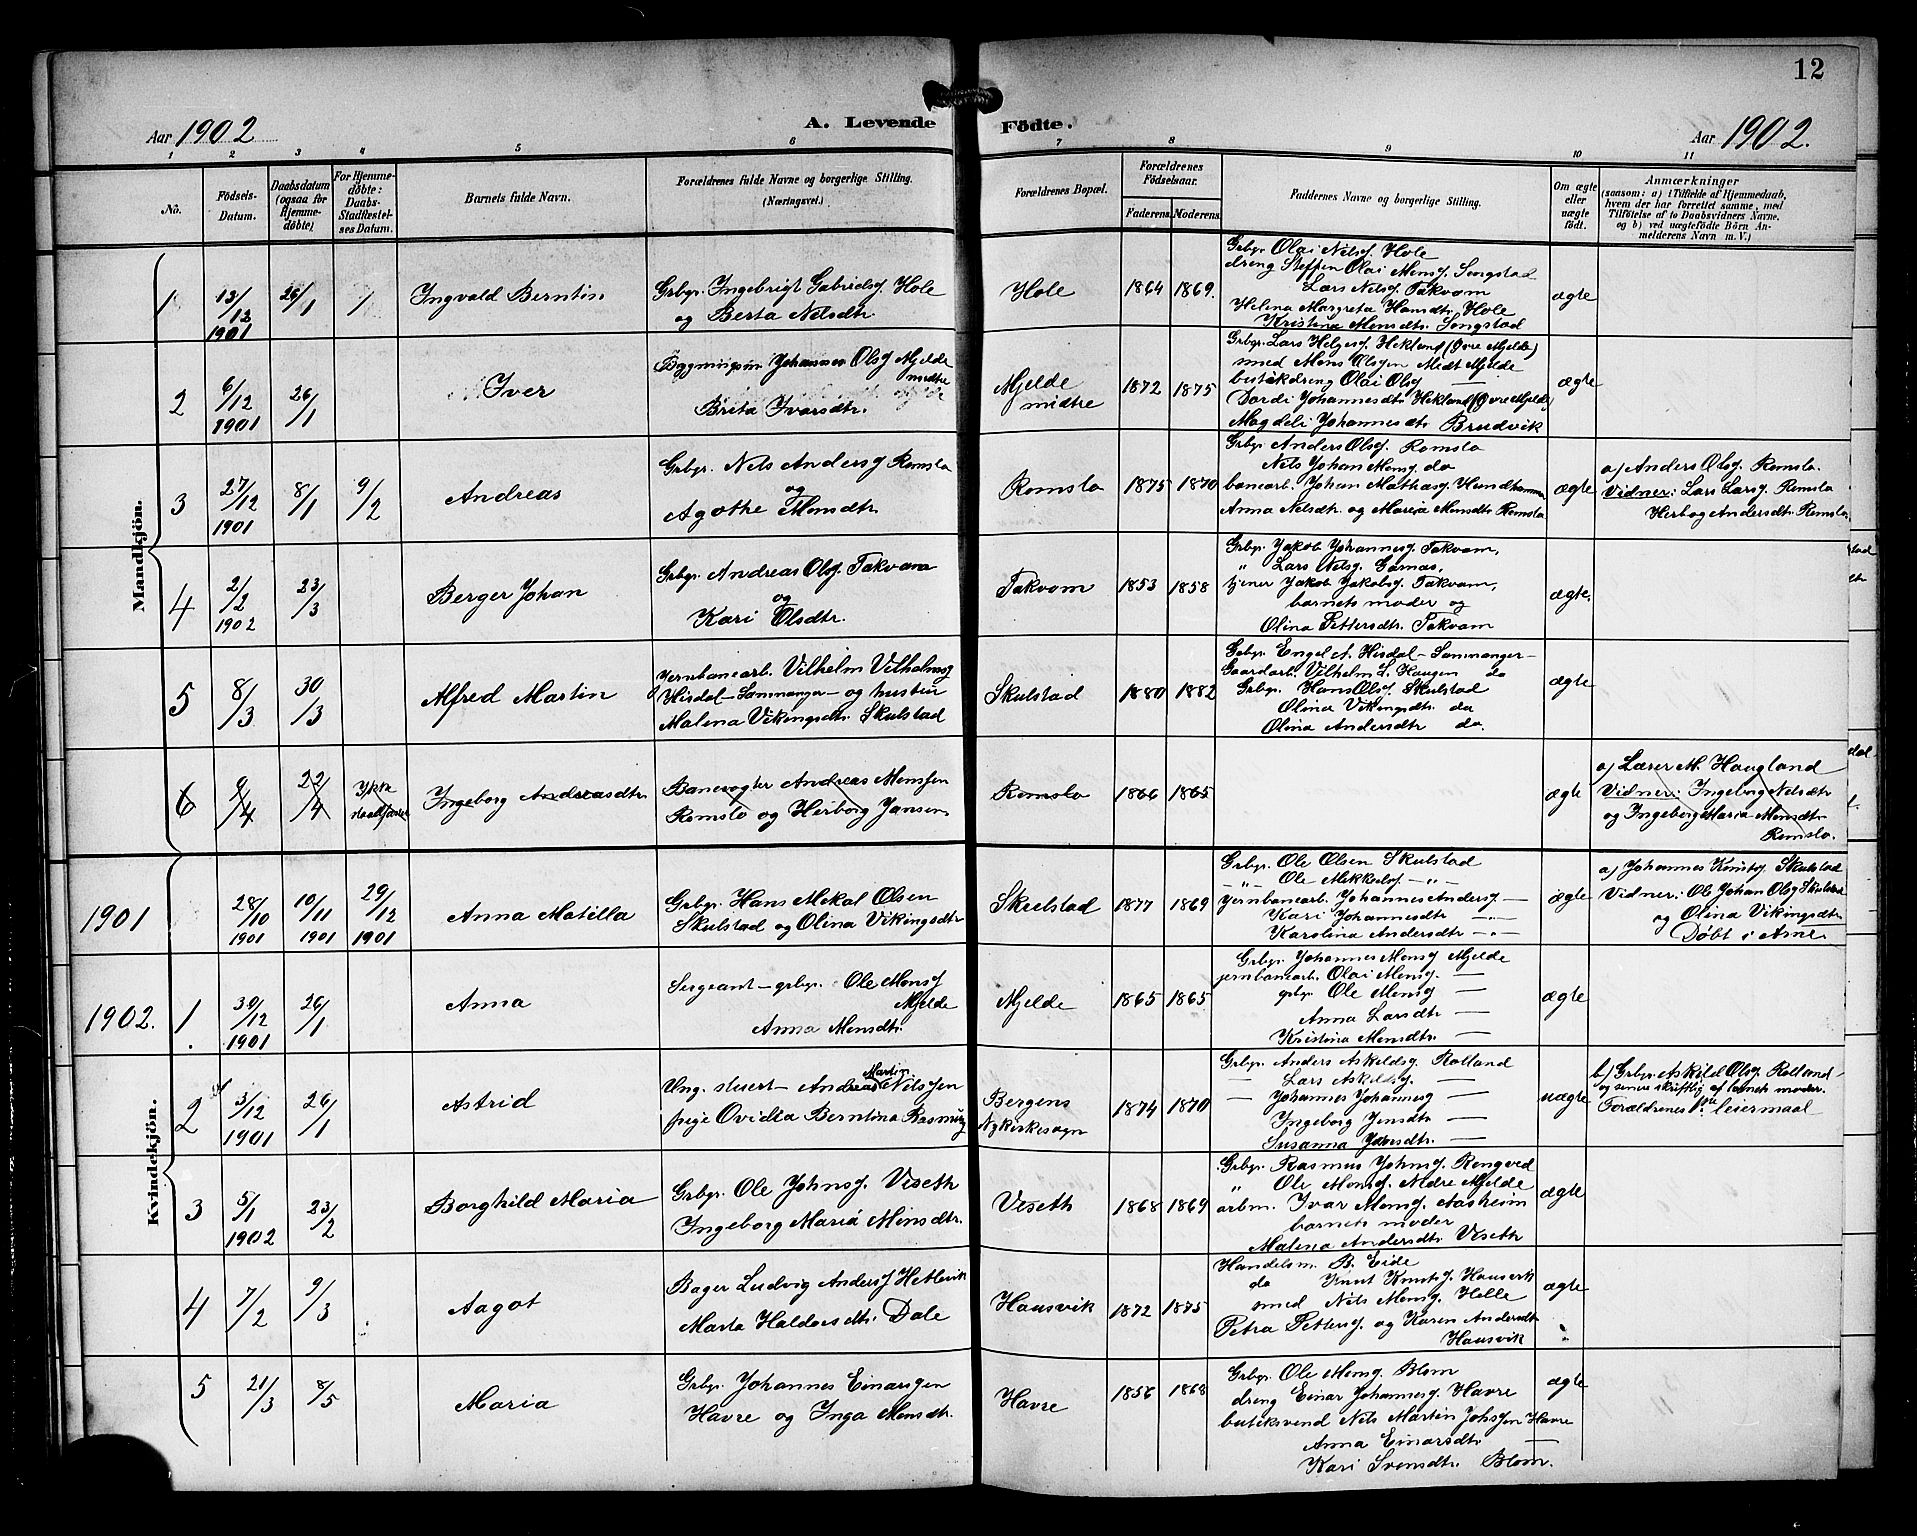 12
Aar 1902
A. Levende Födte.
Aar 1902.
1 2 3 4 5 6 7 8 9 10 11
No.
Födsels-
Datum.
Daabsdatum
(ogsaa for
Hjemme-
döbte)
For Hjemme-
döbte:
Daabs-
Stadfæstel-
ses Datum.
Barnets fulde Navn.
Forældrenes fulde Navne og borgerlige Stilling.
(Næringsvei.)
Forældrenes Bopæl.
Forældrenes
Födselsaar.
Faderens. Moderens.
Faddernes Navne og borgerlige Stilling.
Om ægte
eller
uægte
födt.
Anmærkninger
(saasom: a) i Tilfælde af Hjemmedaab,
hvem der har forrettet samme, med
Tilföielse af to Daabsvidners Navne,
og b) ved uægtefödte Börn An-
melderens Navn m. V.)
Mandkjön.
1
13/12
1901
26/1
/
Ingvald Berntin
Grbgr. Ingebrigt Gabrielsg Hole
og Berta Nelsdtr.
Hole
1864 1869.
Grbgr Olai Nelsg. Hole
dreng Steffen Olai Monsg. Songstad
Lars Nelsg. Takvam
Helena Margreta Hansdtr. Hole
Kristina Monsdtr. Songstad
ægte
2
6/12
1901
26/1
Iver
Johannes Olsg Mjelde
midtre
Brita Ivarsdtr.
Mjelde
midtre
1872 1875
Grbgr. Lars Helgesg. Hekland (Øvre Mjelde)
smed Mons Olsgen Midt Mjelde
dreng Olai Olsg —
Dordi Johannesdtr. Hekland (Øvre Mjelde)
Magdeli Johannesdtr. Brudvik
ægte
3
27/12
1901
8/1
9/2
Andreas
Grbgr. Nels Andersg Romslo
og
Agothe Monsdtr.
Romslo
1875 1870
Grbgr Anders Olsg. Romslo
Nels Johan Monsg. do
banearb. Johan Mathiasg. Hundhammer
Anna Nelsdtr. og Maria Monsdtr. Romslo
ægte
a) Anders Olsg. Romslo.
Vidner: Lars Larsg. Romslo
Herbog Andersdtr. Romslo
4
2/2
1902
23/3
Berger Johan
Grbgr. Andreas Olsg. Takvam
og
Kari Olsdtr.
Takvam
1853 1858
Grbgr. Jakob Johannesg. Takvam,
" Lars Nelsg. Garnas,
tjener Jakob Jakobsg. Takvam,
barnets moder og
Olina Pettersdtr. Takvam
ægte.
5
8/3
30/3
Alfred Martin
Jernbanearb. Vilhelm Vilhelmsg
Hisdal – Sammanger – og hustru
Malena Vikingsdtr. Skulstad
Skulstad
1880 1882
Grbgr. Engel A. Hisdal – Sammanger –
Gaardarb. Vilhelm L. Haugen do
Grbgr. Hans Olsg. Skulstad
Olina Vikingsdtr. do
Olina Andersdtr do.
ægte
6
9/4
22/4
Ingeborg Andreasdtr.
Banevogter Andreas Monssen
Romslo og Herborg Jansen
Romslo
1866 1865
ægte
a) Lærer M. Haugland
Vidner: Ingeborg Nelsdtr
og Ingeborg Maria Monsdtr.
Romslo.
1901
28/10
1901
10/11
1901
29/12
1901
Anna Matilla
Grbgr. Hans Mekal Olsen
Skulstad og Olina Vikingsdtr
Skulstad
1877 1869
Grbgr. Ole Olsen Skulstad
– " – Ole Mekkelsg – " –
Jernbanearb. Johannes Andersg –
Kari Johannesdtr – " –
Karolina Andersdtr – " –
ægte
a) Johannes Knutsg Skulstad
Vidner: Ole Johan Olsg Skulstad
og Olina Vikingsdtr
Døbt i Arne.
Kvindekjön.
1902.
1.
30/12
1901
26/1
Anna
Sergeant – grbgr. Ole Monsg
Mjelde
Anna Monsdtr.
Mjelde
1865 1865
Grbgr. Johannes Monsg Mjelde
jernbanearb. Olai Monsg. —
grbgr. Ole Monsg —
Anna Larsdtr —
Kristina Monsdtr. —
ægte
2
3/12
1901
26/1
Astrid
Ung. stuert – Andreas Martin Nilssen
pige Ovidia Berntina Rasmusg
Bergens
Nykirkesogn
1874 1870
Grbgr. Anders Askeldsg. Rolland
— Lars Askeldsg. —
— Johannes Johannesg —
Ingeborg Jensdtr —
Susanna Jonsdtr. —
uægte
b) Grbgr. Askild Olsg Rolland –
og senere skriftlig af barnets moder.
Forældrenes 1ste leiermaal
3
5/1
1902
23/2
Borghild Maria
Grbgr. Ole Johnsg. Viseth
Ingeborg Maria Monsdtr.
Viseth
1868 1869
Grbgr. Rasmus Johnsg. Rongved
" Ole Monsg. Nedre Mjelde
arbm. Ivar Monsg. Aasheim
barnets moder
Malena Andersdtr. Viseth
ægte
4
7/2
9/3
Aagot
Bager Ludvig Andersg Hetlevik
Marta Haldorsdtr. Dale
Hausvik
1872 1875
Handelsm. B. Eide
do Knut Knutsg. Hausvik
smed Nils Monsg. Helle
Petra Pettersg. og Karen Andersdtr
Hausvik
ægte
5
21/3
8/5
Maria
Grbgr. Johannes Einarsgen
Havre og Inga Monsdtr.
Havre
1856 1868
Grbgr. Ole Monsg. Blom
dreng Einar Johannesg. Havre
butiksvend Nils Martin Johssen Havre
Anna Einarsdtr —
Kari Svensdtr. Blom.
ægte